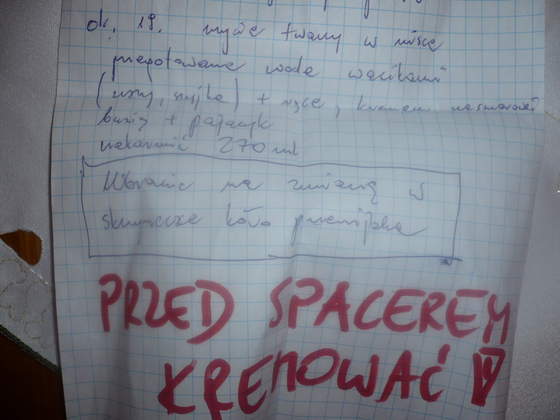 ok. 19. mycie twarzy w misce
przegotowane wodą wacikami
(uszy, szyjka) + ręce, kremem nasmarować
buzię + pajacyk
nakarmić 270 ml
Ubranie na zmianę w
skrzynce koło przewijaka
PRZED SPACEREM
KREMOWAĆ